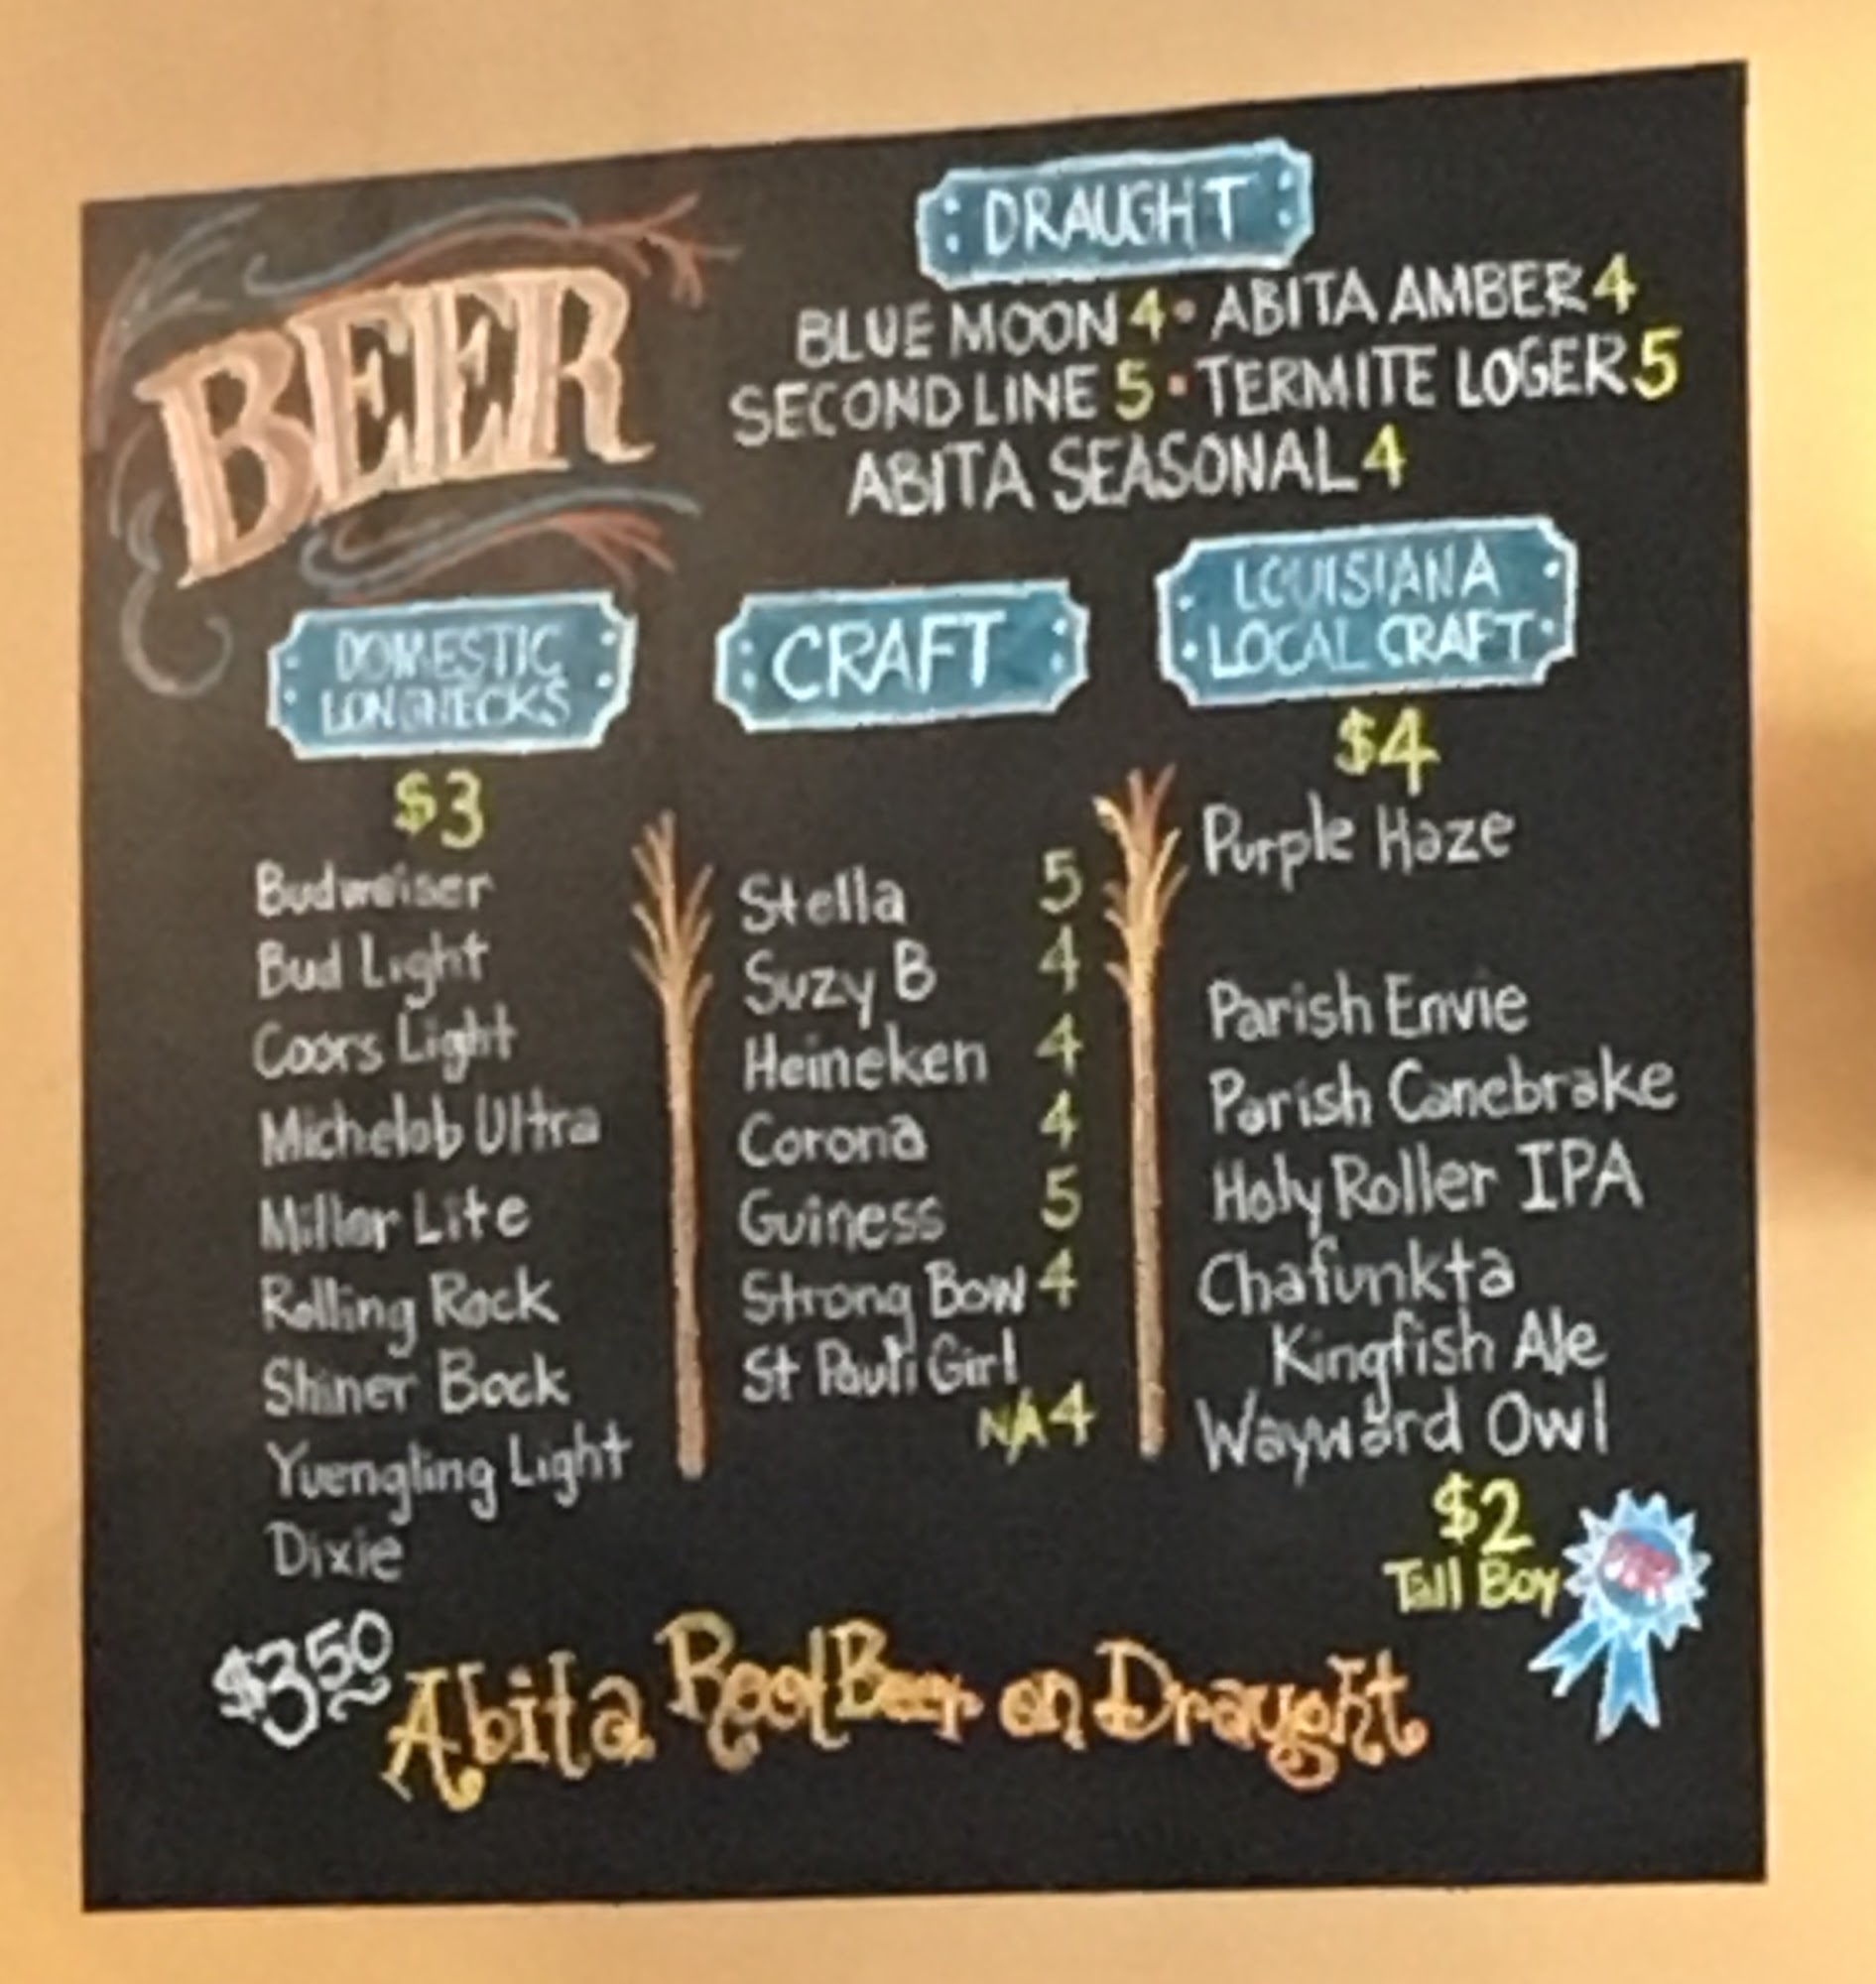 BEER
DRAUGHT
BLUE MOON 4 • ABITA AMBER 4
SECOND LINE 5 • TERMITE LOGER 5
ABITA SEASONAL 4
DOMESTIC
LONGNECKS
$3
Budweiser
Bud Light
Coors Light
Michelob Ultra
Miller Lite
Rolling Rock
Shiner Bock
Yuengling Light
Dixie
CRAFT
Stella 5
Suzy B 4
Heineken 4
Corona 4
Guiness 5
Strong Bow 4
St Pauli Girl
N/A 4
LOUISIANA
LOCAL CRAFT
$4
Purple Haze
Parish Envie
Parish Canebrake
Holy Roller IPA
Chafunkta
Kingfish Ale
Wayward Owl
$2
Tall Boy
PBR
$3.50 Abita Root Beer on Draught